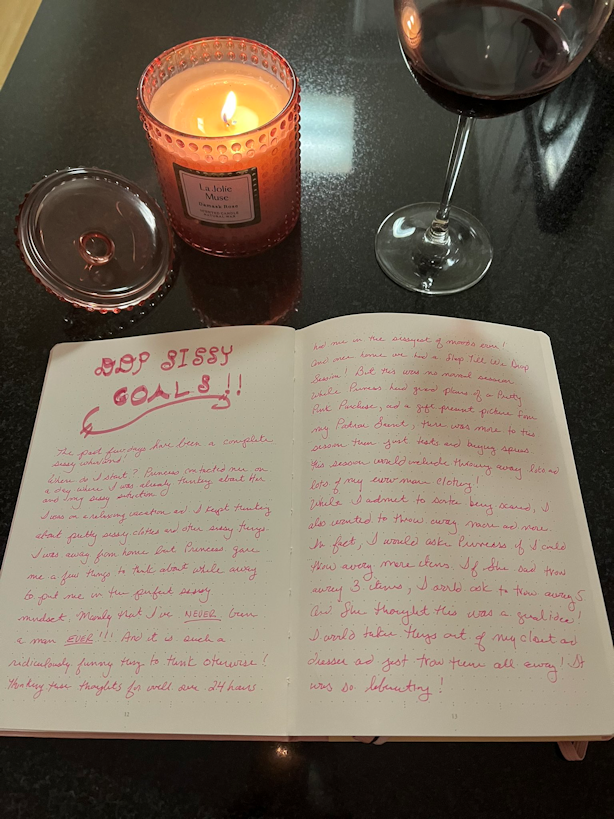 La Jolie
Muse
Damask Rose
SCENTED CANDLE
NATURAL WAX
DDP SISSY
GOALS!!
The past few days have been a complete
sissy whirlwind!
Where do I start? Princess contacted me on
a day where I was already thinking about Her
and my sissy situation
I was on a relaxing vacation ad I kept thinking
about pretty sissy clothes and other sissy things
I was away from home but Princess gave
me a few things to think about while away
to put me in the perfect sissy
mindset. Mainly that I've NEVER been
a man EVER!!! And it is such a
ridiculously funny thing to think otherwise!
Thinking these thoughts for well over 24 hours
12
had me in the sissyest of moods ever!
And once home we had a Shop Till We Drop
Session! But this was no normal session
While Princess had good plans of a Pretty
Pink Purchase, ad a gift present picture from
my Patron Saint, there was more to this
session then just tasks and buying sprees
this session would include throwing away lots ad
lots of my ever more clothing!
While I admit to being scared, I
also wanted to throw away more ad more.
In fact, I would ask Princess if I could
throw away more items. If She said throw
away 3 items, I would ask to throw away 5
And She thought this was a great idea!
I would take things out of my closet ad
dresser ad just throw them all away! It
was so liberating!
13